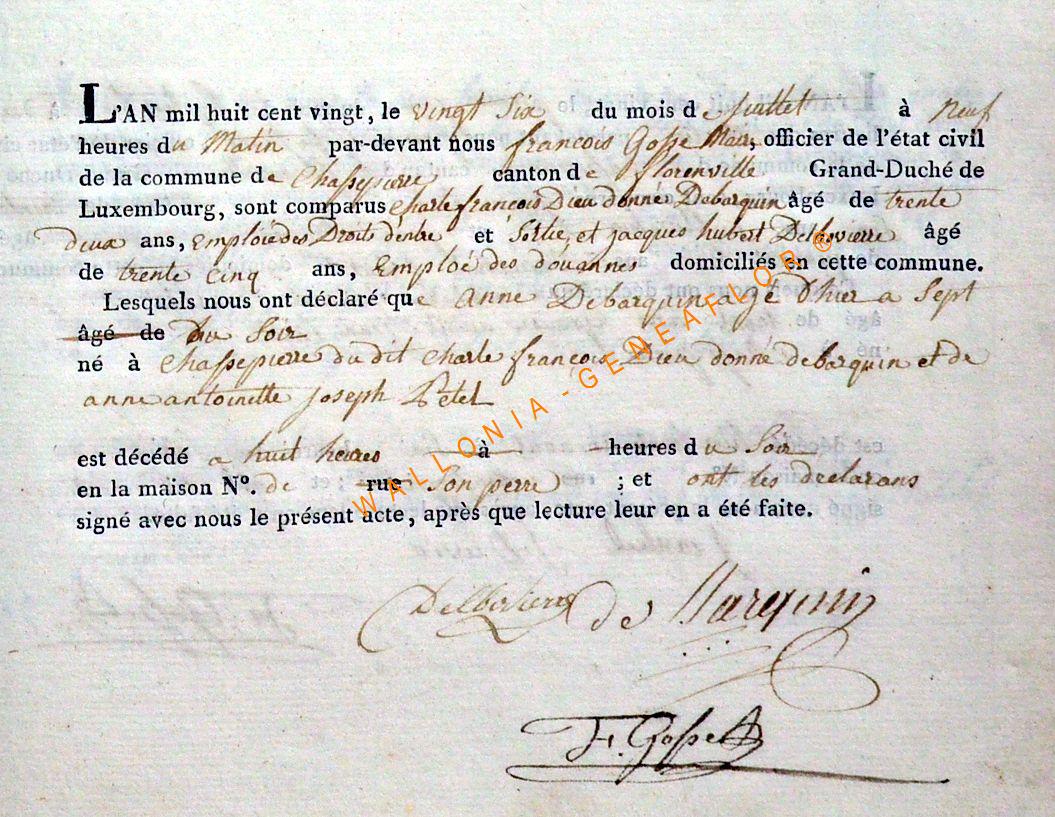 L'AN mil huit cent vingt, le vingt Six du mois de Juillet à neuf
heures du Matin par-devant nous françois Gosse Maire, officier de l'état civil
de la commune de Chassepierre canton de florenville Grand-Duché de
Luxembourg, sont comparus Charle françois Dieu donné Debarquin âgé de trente
deux ans, Emploié des Droits d'entre et Sortie, et jacques hubert âgé
de trente cinq ans, Emploé des douannes domiciliés en cette commune.
Lesquels nous ont déclaré que anne Debarquin agé d'hier a Sept
âgé de Du Soir
né à Chassepierre du dit Charle françois Dieu donné debarquin et de
anne antoinette joseph Petel
est décédé a huit heures à heures du Soir
en la maison N°. de rue Son perre ; et ont les declarans
signé avec nous le présent acte, après que lecture leur en a été faite.
de Barquin
F. Gosse
WALLONIA - GENEAFLOR ©